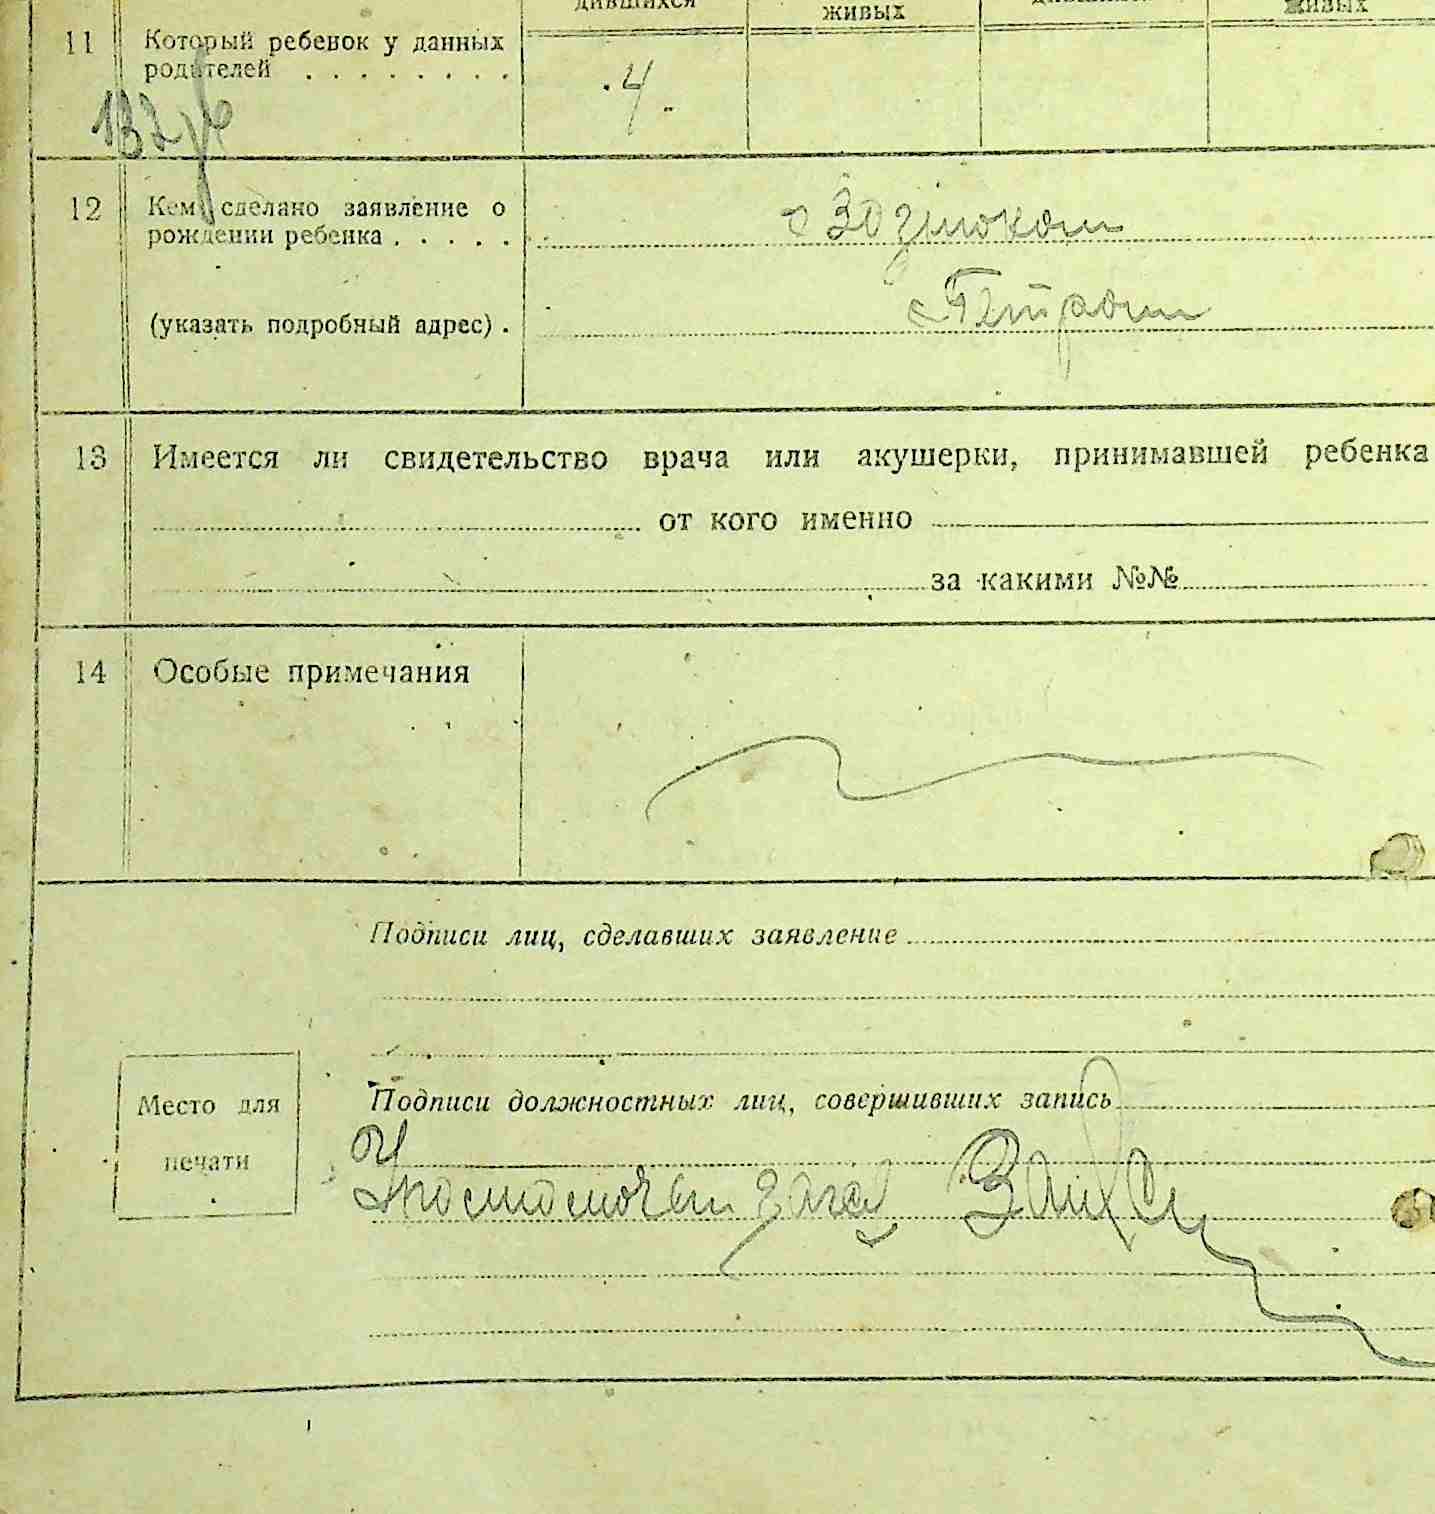 дившихся живых живых
11 Который ребенок у данных
родителей . . . . . . . . 4
12 Кем сделано заявление о
рождении ребенка . . . . .
(указать подробный адрес) .
13 Имеется ли свидетельство врача или акушерки, принимавшей ребенка
от кого именно
за какими №№
14 Особые примечания
Подписи лиц, сделавших заявление
Подписи должностных лиц, совершивших запись
Место для
печати